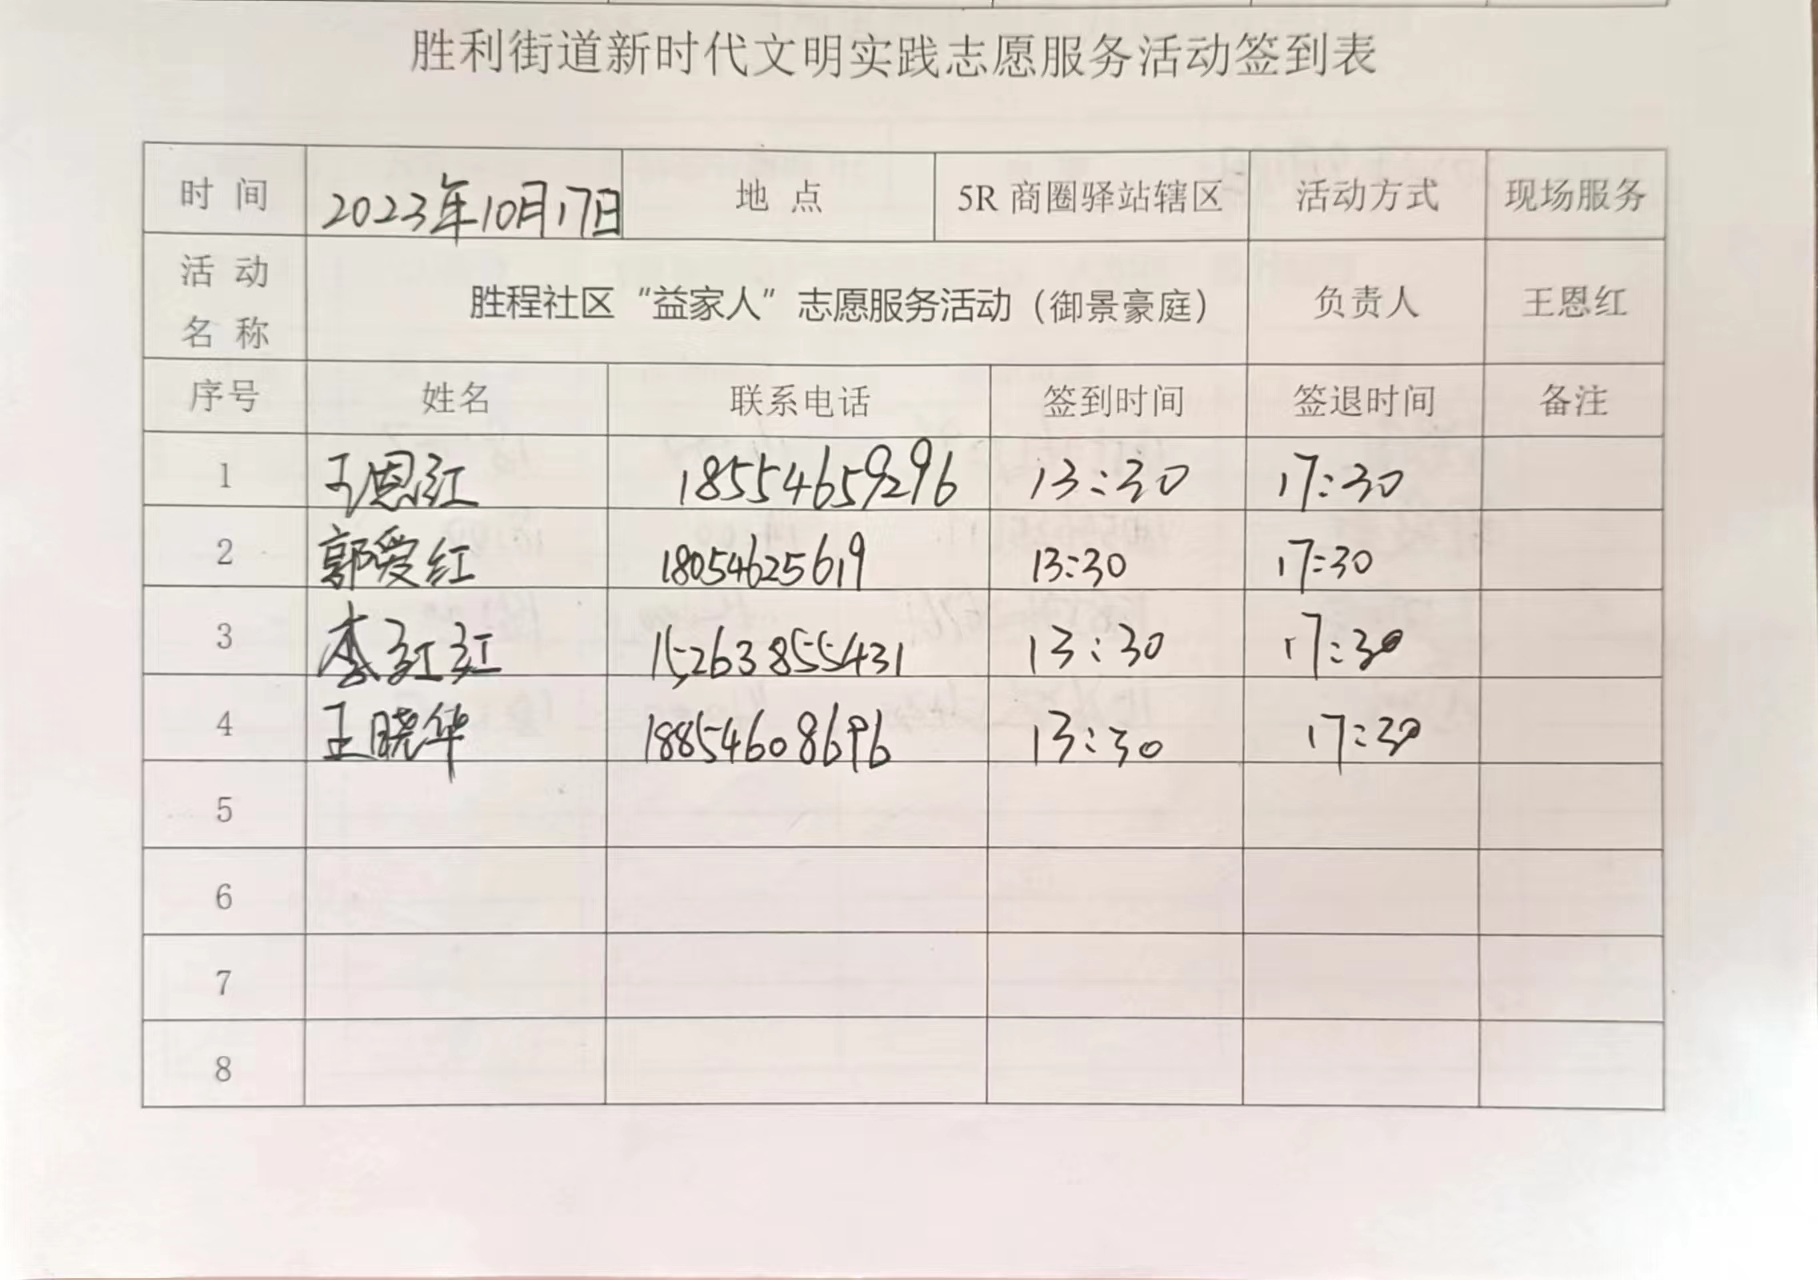 胜利街道新时代文明实践志愿服务活动签到表
时 间 2023年10月17日 地 点 5R 商圈驿站辖区 活动方式 现场服务
活 动
名 称 胜程社区“益家人”志愿服务活动（御景豪庭） 负责人 王恩红
序号 姓名 联系电话 签到时间 签退时间 备注
1 王恩红 18554659296 13:30 17:30
2 郭爱红 18054625619 13:30 17:30
3 李红红 15263855431 13:30 17:30
4 王晓华 18854608696 13:30 17:30
5
6
7
8